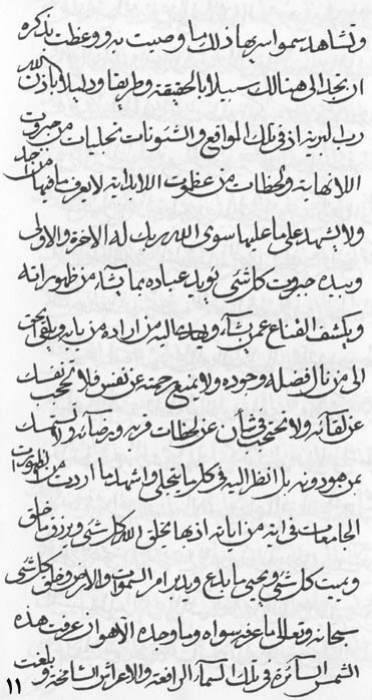 ولشاهد سموا سر بها ذلك ما وصيت به ووعظت بذكره
ان تجد الى هنالك سبيلا بالحقيقة وطريقا ودليلا باذن الله
رب البرية اذ في تلك المواقع والشئونات تجليات من جبروت
اللانهاية ولحظات من عظموت اللابداية لا يعرف ما فيها من احد
ولا يشهد على ما عليها سوى الله ربك له الاخرة والاولى
وبيده جبروت كل شئ يؤيد عباده بما يشاء من ظهور انه
ويكشف القناع عمن يشاء ويهدي اليه من اراد من بابه ويلقي الحق
الى من نال فضله وجوده ولا يمنع رحمته عن نفس فلا تحجب نفسك
عن لقائه ولا تحتجب في شأن عن لحظات قربه ورضائه ولا تمسك
بمن دونه بل انظر اليه في كل ما يتجلى واشهد ما اردت من الظهورات
الجامعات في اية من اياته اذ بها يخلق الله كل شئ ويرزق ما خلق
ويميت كل شئ ويحيي ما بدع ويدبر امر السموات والارض وخلق كل شئ
سبحانه وتعالى ما عرفه سواه وما وحده الا هو ان عرفت هذه
الشمس السائرة في تلك السماء الرافعة والاعراش الشامخة وبلغت
١١